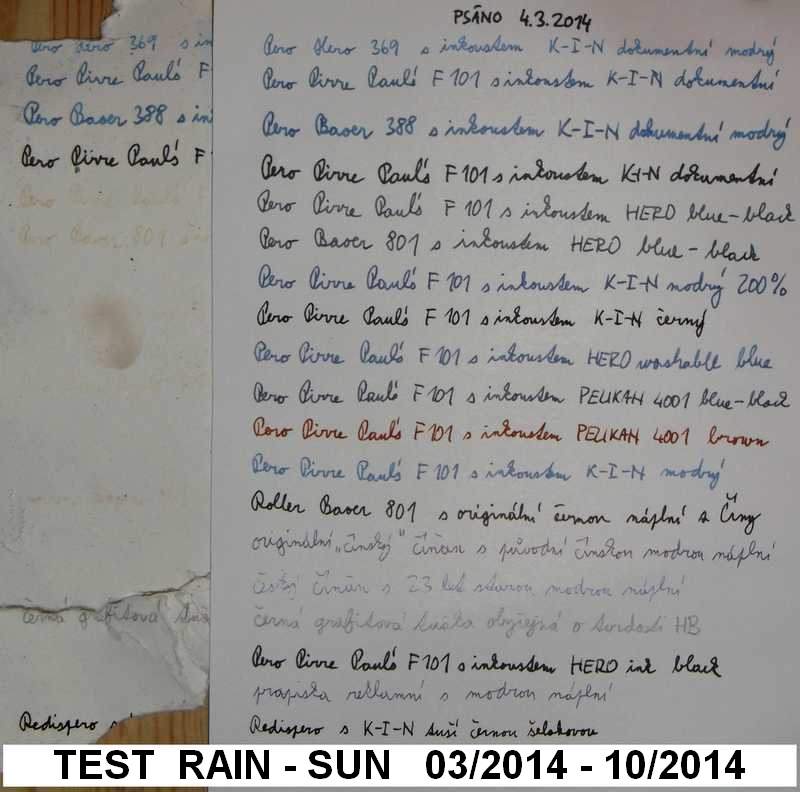 PSÁNO 4.3.2014
Pero Hero 369 s in
Pero Pirre Paul's F
Pero Baoer 388 s in
Pero Pirre Paul's F
Pero Pirre Paul's F
Pero Baoer 801
černá grafitová tu
Redispero s
Pero Hero 369 s inkoustem K-I-N dokumentní modrý
Pero Pirre Paul's F 101 s inkoustem K-I-N dokumentní
Pero Baoer 388 s inkoustem K-I-N dokumentní modrý
Pero Pirre Paul's F 101 s inkoustem K-I-N dokumentní
Pero Pirre Paul's F 101 s inkoustem HERO blue-black
Pero Baoer 801 s inkoustem HERO blue-black
Pero Pirre Paul's F 101 s inkoustem K-I-N modrý 200%
Pero Pirre Paul's F 101 s inkoustem K-I-N černý
Pero Pirre Paul's F 101 s inkoustem HERO washable blue
Pero Pirre Paul's F 101 s inkoustem PELIKAN 4001 blue-black
Pero Pirre Paul's F 101 s inkoustem PELIKAN 4001 brown
Pero Pirre Paul's F 101 s inkoustem K-I-N modrý
Roller Baoer 801 s originální černou náplní z Číny
originální "čínský" číňan s původní čínskou modrou náplní
český číňan s 23 let starou modrou náplní
černá grafitová tužka obyčejná o tvrdosti HB
Pero Pirre Paul's F 101 s inkoustem HERO ink black
propiska reklamní s modrou náplní
Redispero s K-I-N tuší černou šelakovou
TEST RAIN - SUN 03/2014 - 10/2014